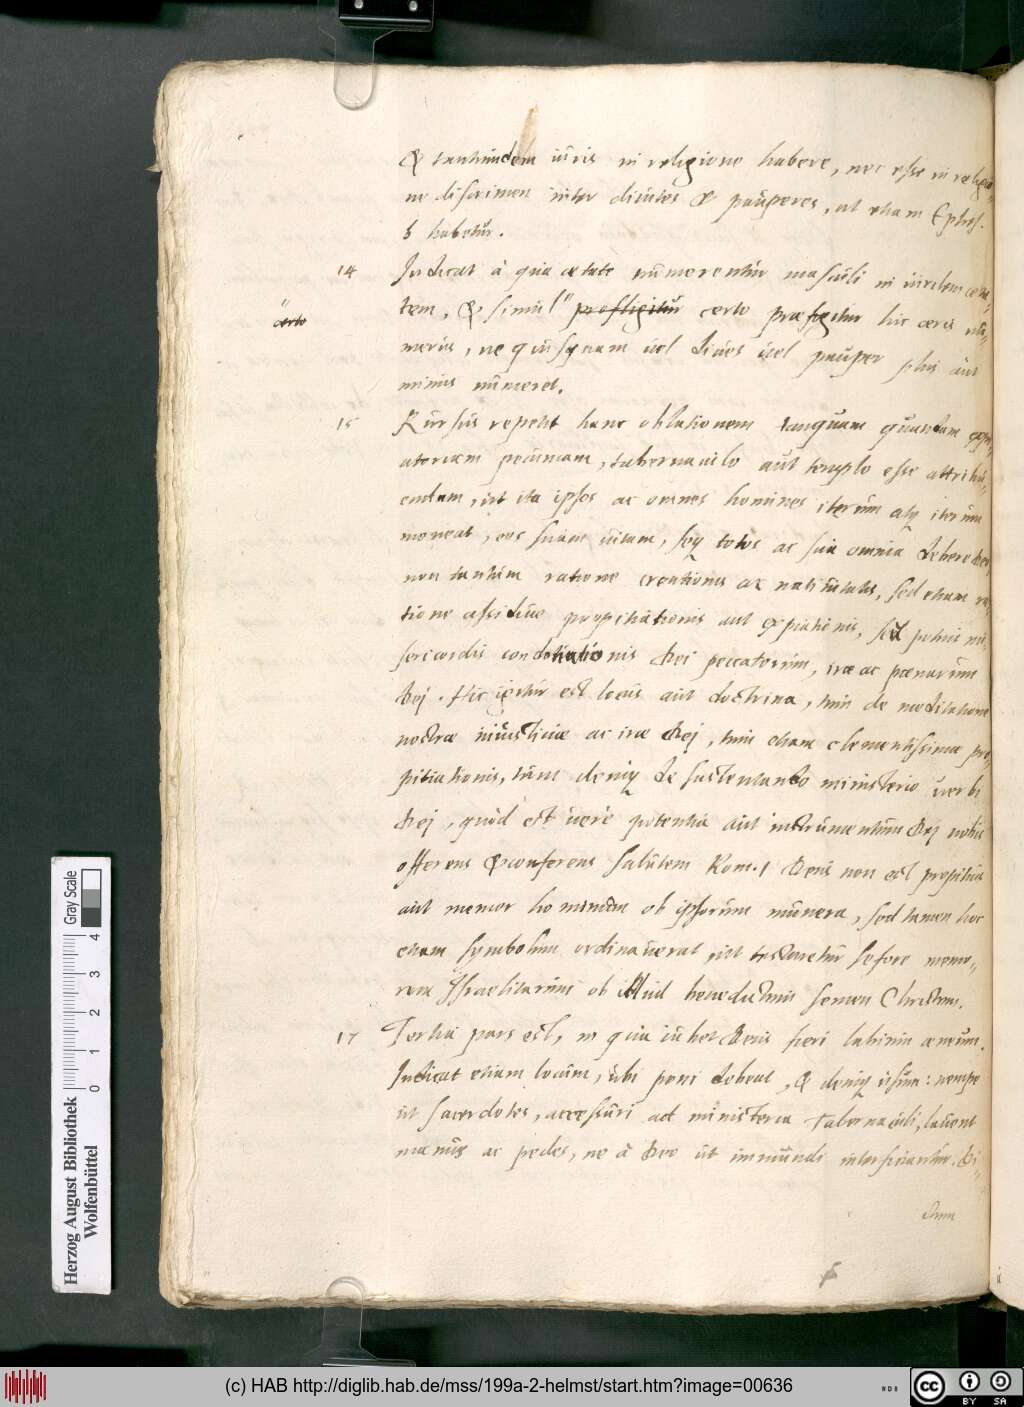 & tantundem iuris in religione habere, nec esse in religio-
ne discrimen inter diuites & pauperes, ut etiam Ephes.
6 habetur.
14 Indicat à qua ætate numerentur masculi in
certo
tem, & simul" profligitur certo præfigitur hic æris nu-
merus, ne quisquam uel diues uel pauper plus aut
minus numeret.
15 Rursus repetit hanc oblationem tanquam quandam
pecuniam, tabernaculo aut templo esse attribu-
endam, ut ita ipsos ac omnes homines iterum atq iterum
moneat, eos suam uitam, seq totos ac sua omnia debere Deo,
non tantum ratione creationis ac natiuitatis, sed etiam ra-
tione assiduæ propitiationis aut expiationis, seu potius mi-
sericordis condonationis Dei peccatorum, iræ ac pœnarum
Dej. Hic igitur est locus aut doctrina, tum de meditatione
nostræ iniusticiæ ac iræ Dej, tum etiam clementissimæ pro-
pitiationis, tum deniq de sustentando ministerio uerbi
Dej, quòd est uerè potentia aut instrumentum Dej nobis
offerens & conferens salutem Rom. 1 Deus non est propitius
aut memor hominum ob ipsorum munera, sed tamen hoc
etiam symbolum ordinauerat, ut testaretur se fore memo-
rem Israelitarum ob illud benedictum semen Christum.
17 Tertia pars est, in qua iubet Deus fieri labrum æneum.
Indicat etiam locum, ubi poni debeat, & deniq usum: nempe
ut sacerdotes, accessuri ad ministeria tabernaculi, lauent
manus ac pedes, ne à Deo ut immundi interficiantur. Di-
ctum
Herzog August Bibliothek
Wolfenbüttel
Gray Scale
0 1 2 3 4
(c) HAB http://diglib.hab.de/mss/199a-2-helmst/start.htm?image=00636
cc BY SA